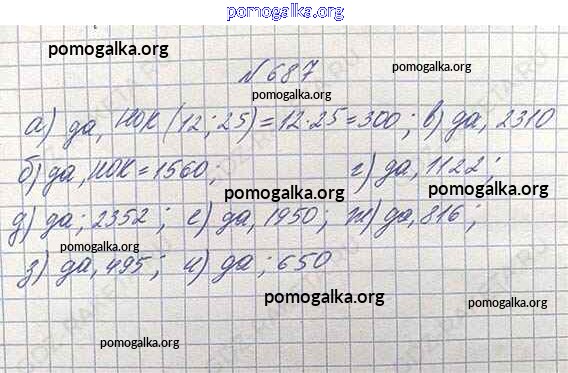 pomogalka.org
pomogalka.org
№687
pomogalka.org
pomogalka.org
а) да, НОК (12; 25) = 12·25 = 300; в) да, 2310
б) да, НОК = 1560; г) да, 1122;
pomogalka.org
pomogalka.org
д) да; 2352; е) да, 1950; ж) да, 816;
pomogalka.org
з) да, 495; и) да; 650
pomogalka.org
pomogalka.org
pomogalka.org
pomogalka.org